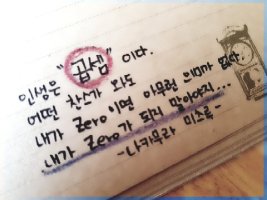 인생은 "곱셈" 이다.
어떤 찬스가 와도
내가 Zero 이면 아무런 의미가 없다.
내가 Zero가 되지 말아야지...
-나카무라 미츠루-